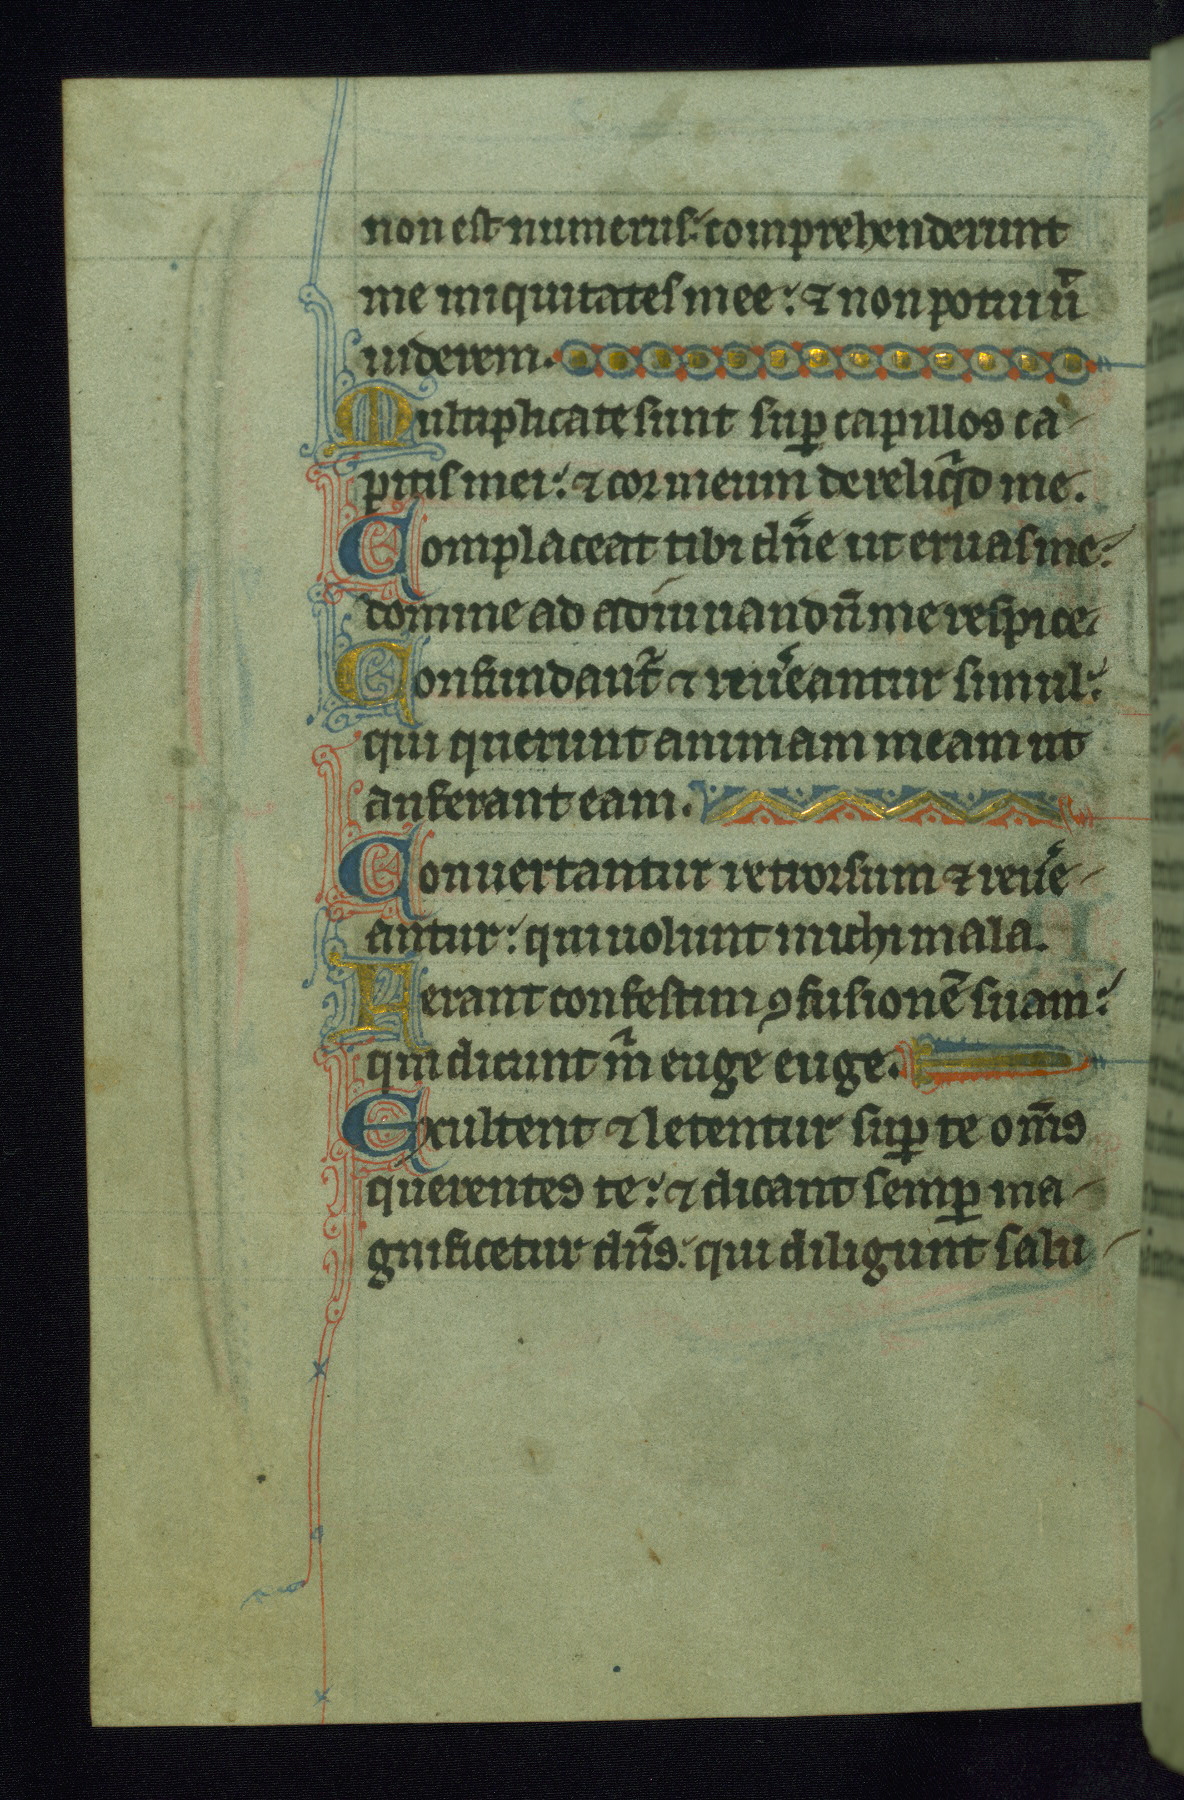 non est numerus: comprehenderunt
me iniquitates mee: ⁊ non potui ū
uiderem.
Multiplicate sunt suꝑ capillos ca-
pitis mei: ⁊ cor meum dereliq̍d me.
Complaceat tibi dn̄e ut eruas me:
domine ad adiuuandū me respice.
Confundant᷑ ⁊ reu̾eantur simul:
qui querunt animam meam ut
auferant eam.
Conuertantur retrorsum ⁊ reu̾e-
antur: qui uolunt michi mala.
Ferant confestim ꝯfusionē suam:
qui dicunt m̍ euge euge.
Exultent ⁊ letentur suꝑ te om̄s
querentes te: ⁊ dicant semꝑ ma-
gnificetur dn̄s: qui diligunt salu-